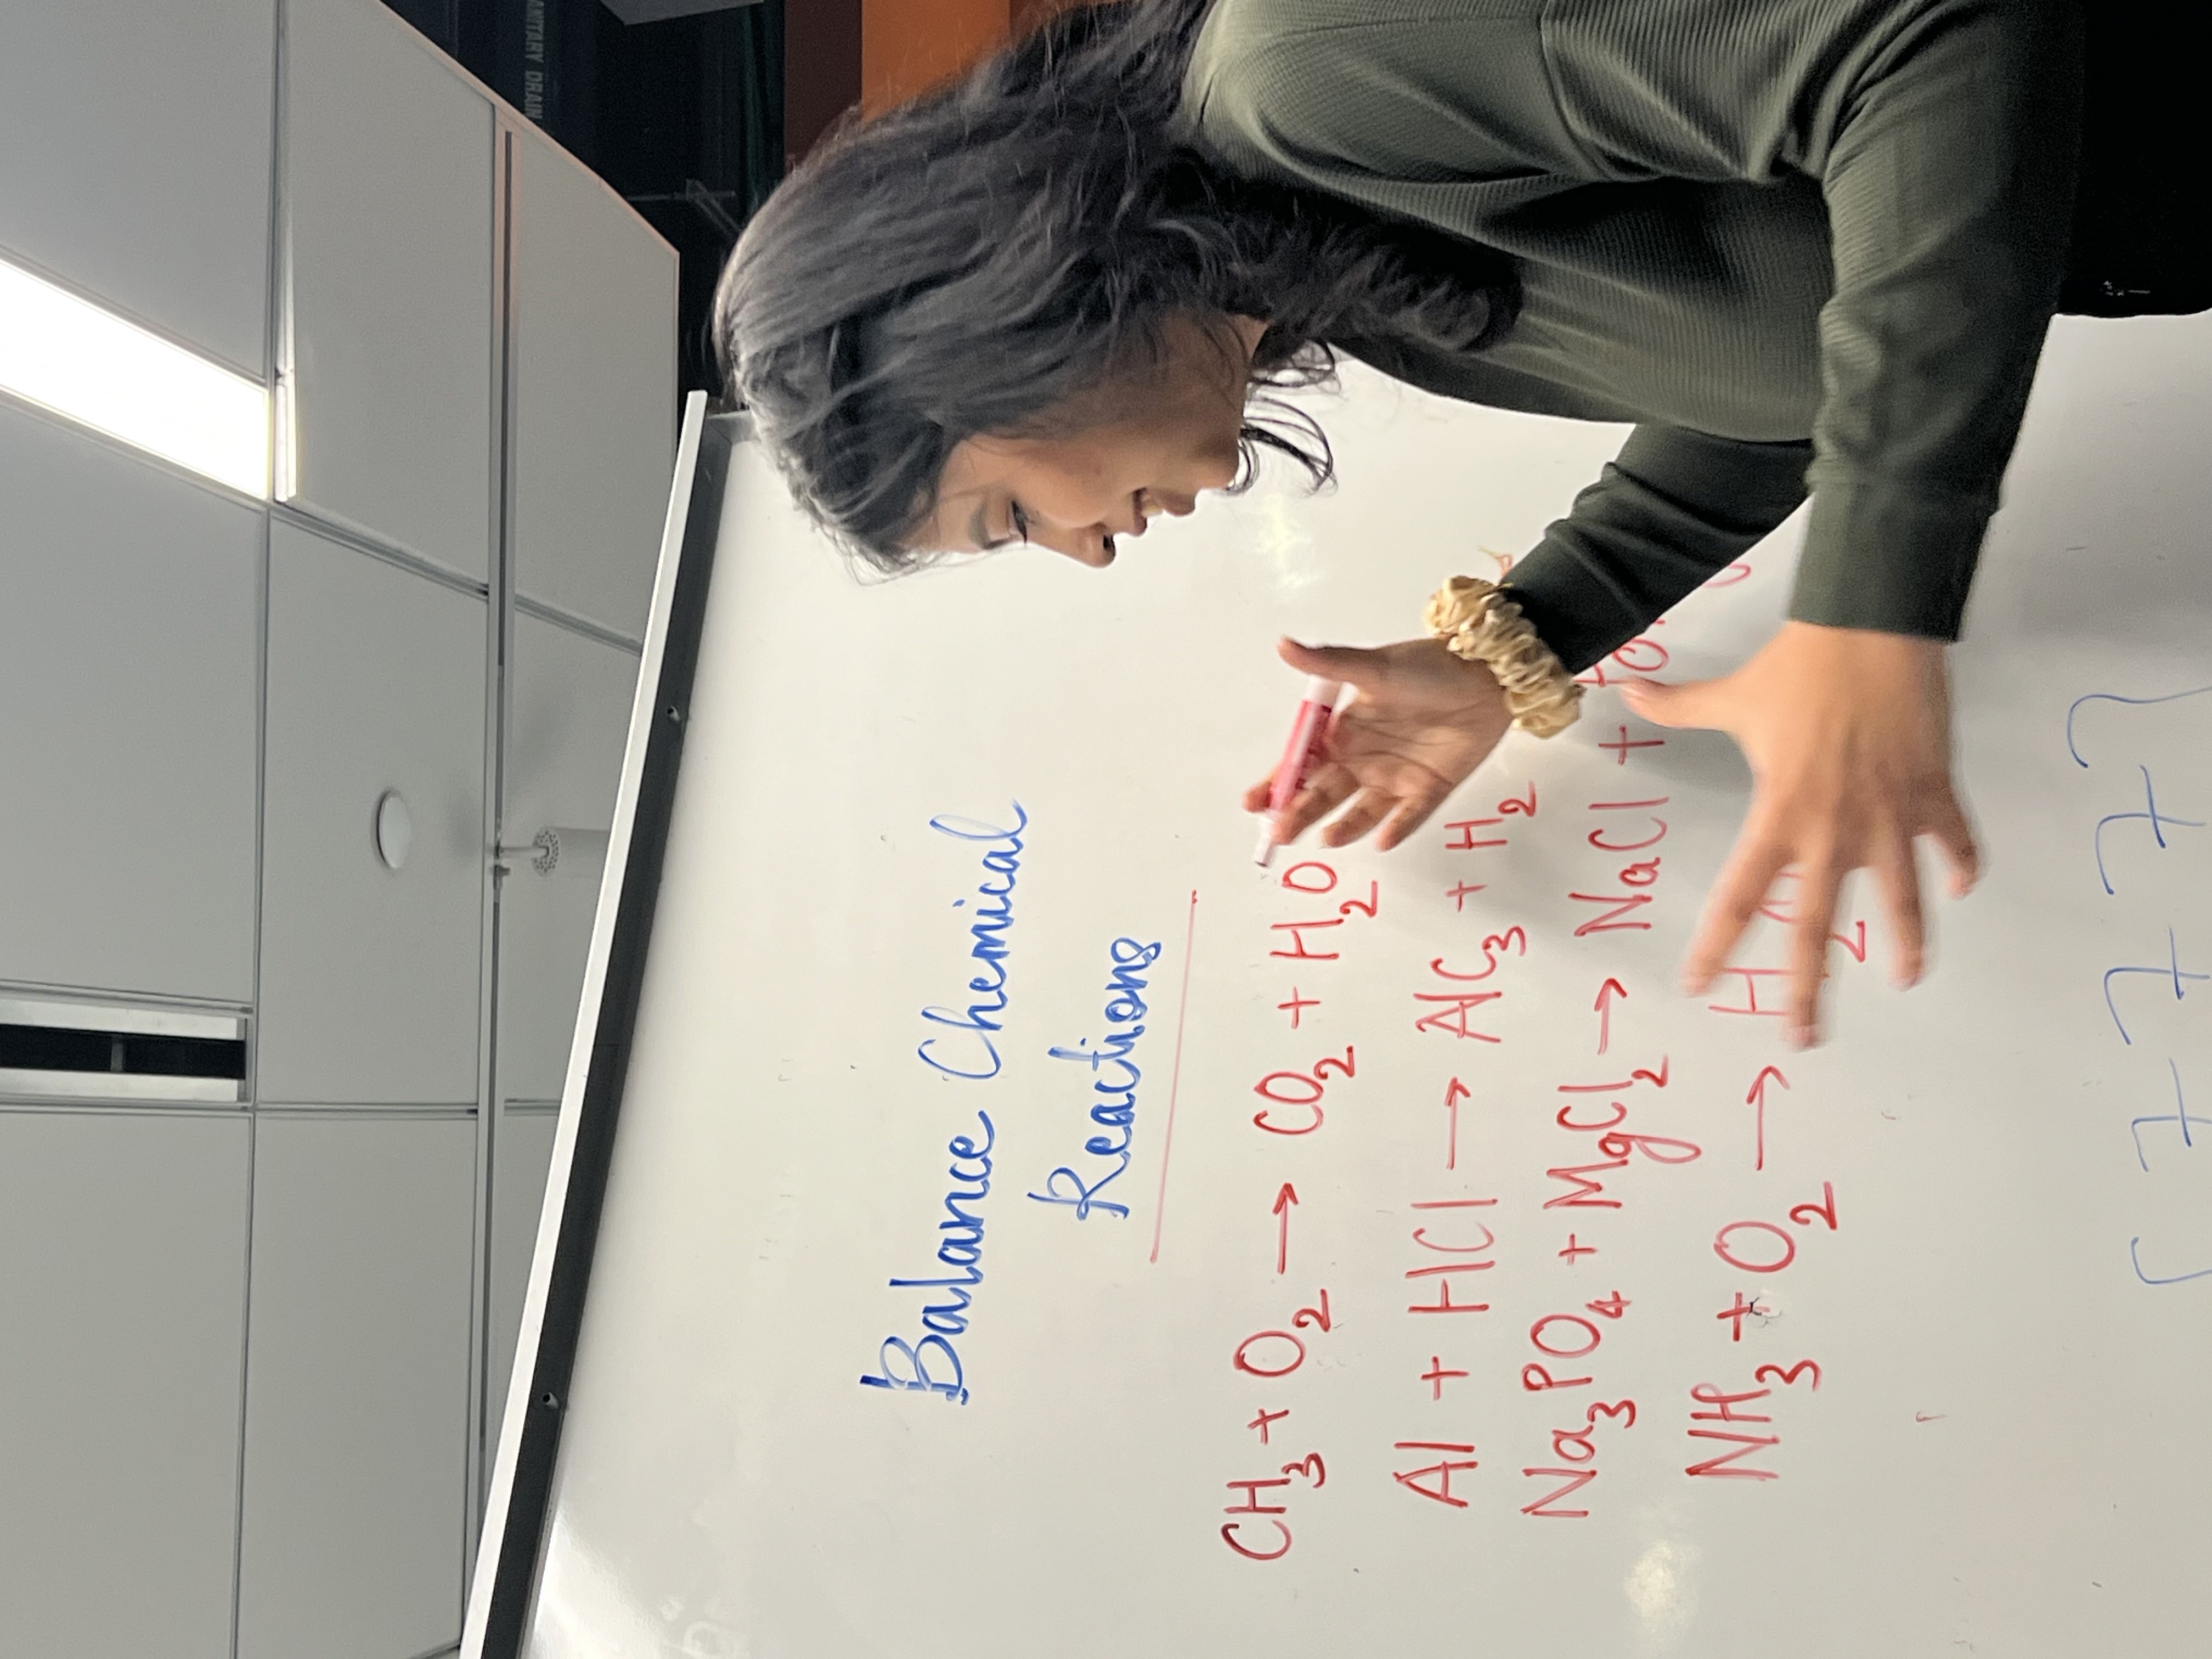 ANITARY DRAIN
Balance Chemical
Reactions
CH₃ + O₂ → CO₂ + H₂O
Al + HCl → AlC₃ + H₂
Na₃PO₄ + MgCl₂ → NaCl +
NH₃ + O₂ → H₂
7 7 7